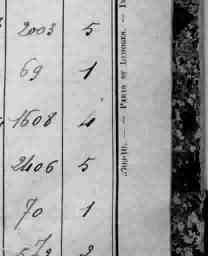 2003 5
69 1
1608 4
2406 5
70 1
PARIS ET LIMOGES. —